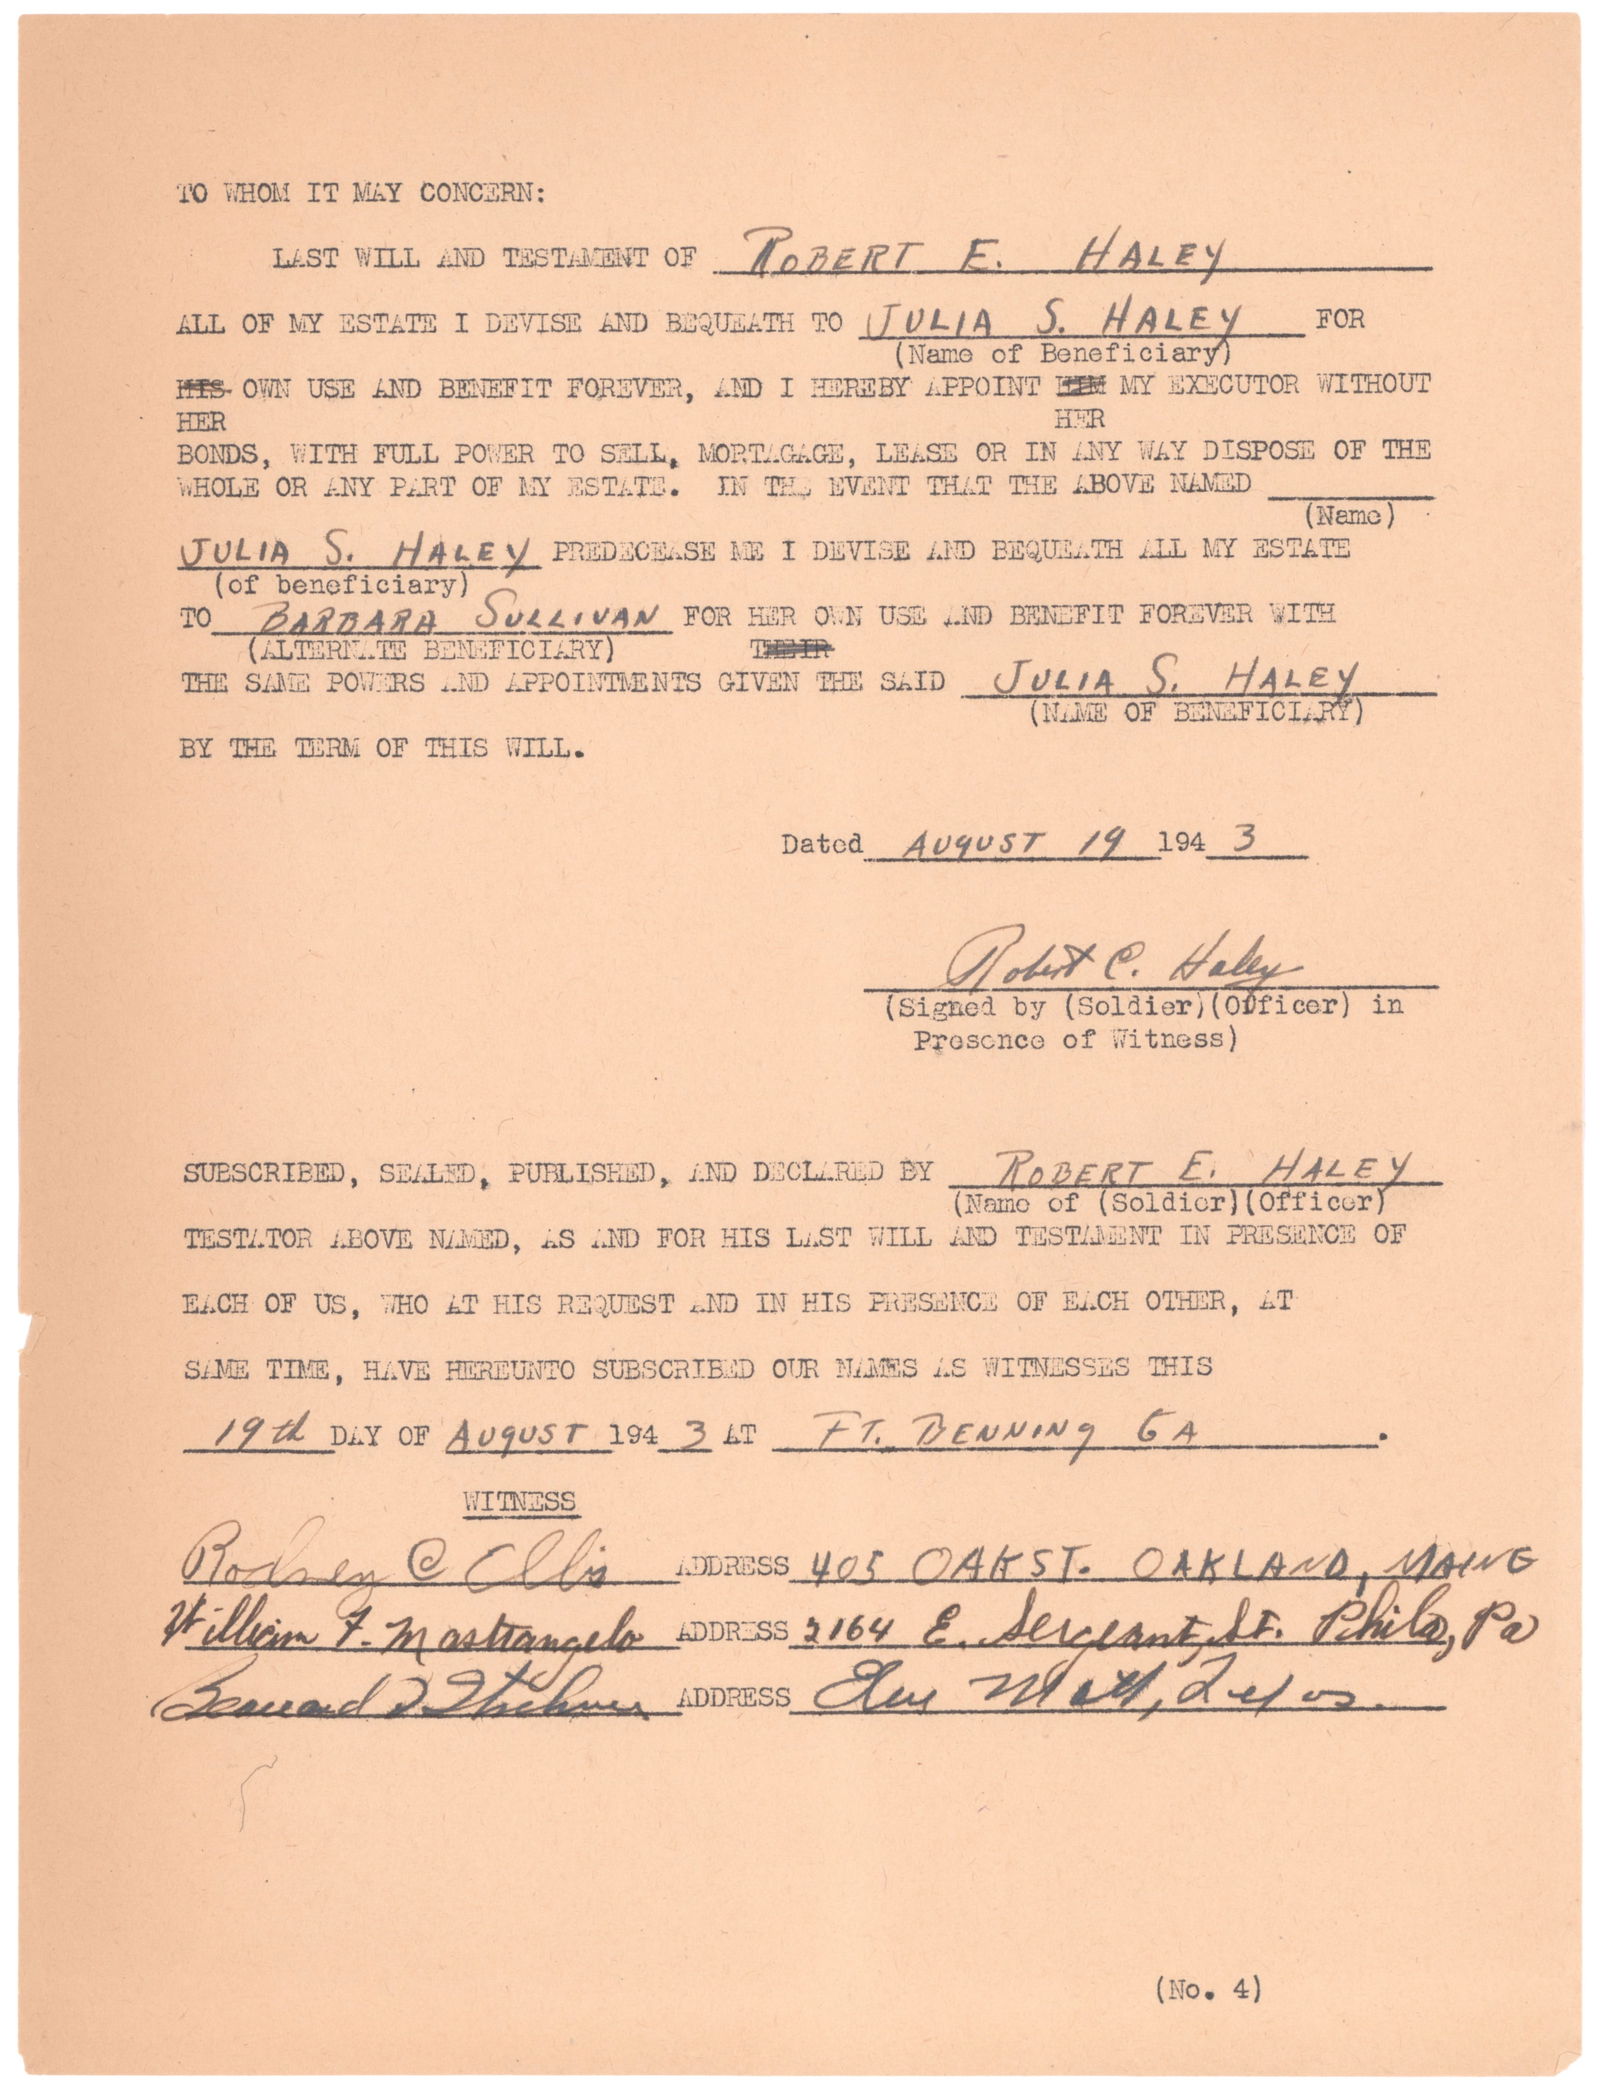 TO WHOM IT MAY CONCERN:
LAST WILL AND TESTAMENT OF ROBERT E. HALEY
ALL OF MY ESTATE I DEVISE AND BEQUEATH TO JULIA S. HALEY FOR
(Name of Beneficiary)
HIS OWN USE AND BENEFIT FOREVER, AND I HEREBY APPOINT HIM MY EXECUTOR WITHOUT
HER HER
BONDS, WITH FULL POWER TO SELL, MORTAGAGE, LEASE OR IN ANY WAY DISPOSE OF THE
WHOLE OR ANY PART OF MY ESTATE. IN THE EVENT THAT THE ABOVE NAMED
(Name)
JULIA S. HALEY PREDECEASE ME I DEVISE AND BEQUEATH ALL MY ESTATE
(of beneficiary)
TO BARBARA SULLIVAN FOR HER OWN USE AND BENEFIT FOREVER WITH
(ALTERNATE BENEFICIARY) THEIR
THE SAME POWERS AND APPOINTMENTS GIVEN THE SAID JULIA S. HALEY
(NAME OF BENEFICIARY)
BY THE TERM OF THIS WILL.
Dated AUGUST 19 1943
Robert E. Haley
(Signed by (Soldier)(Officer) in
Presence of Witness)
SUBSCRIBED, SEALED, PUBLISHED, AND DECLARED BY ROBERT E. HALEY
(Name of (Soldier)(Officer)
TESTATOR ABOVE NAMED, AS AND FOR HIS LAST WILL AND TESTAMENT IN PRESENCE OF
EACH OF US, WHO AT HIS REQUEST AND IN HIS PRESENCE OF EACH OTHER, AT
SAME TIME, HAVE HEREUNTO SUBSCRIBED OUR NAMES AS WITNESSES THIS
19th DAY OF AUGUST 1943 AT FT. BENNING GA.
WITNESS
Rodney C Ellis ADDRESS 405 OAK ST. OAKLAND, MAINE
William F. Mastrangelo ADDRESS 2164 E. Sergeant, St. Phila, Pa
ADDRESS Texas.
(No. 4)